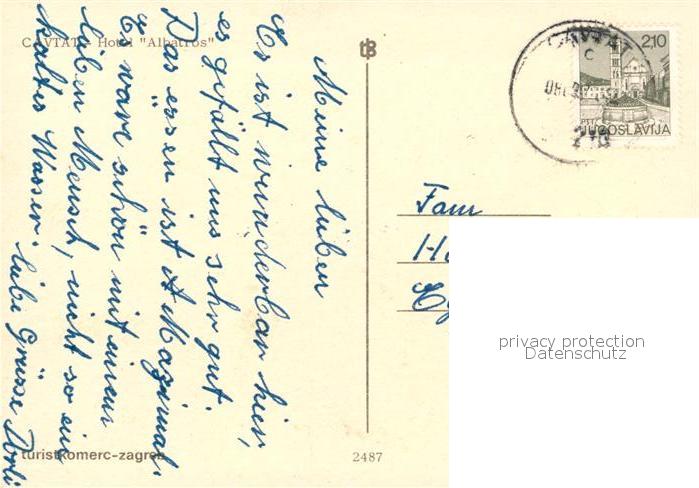 CAVTAT - Hotel "Albatros"
Meine lieben
Es ist wunderbar hier,
es gefällt uns sehr gut.
Das essen ist A Maximal.
Es wäre schön mit einem
lieben Mensch, nicht so ein
kaltes Wasser. liebe Grüsse
turistkomerc-zagreb
2487
CAVTAT
2,10
JUGOSLAVIJA
Fam
privacy protection
Datenschutz